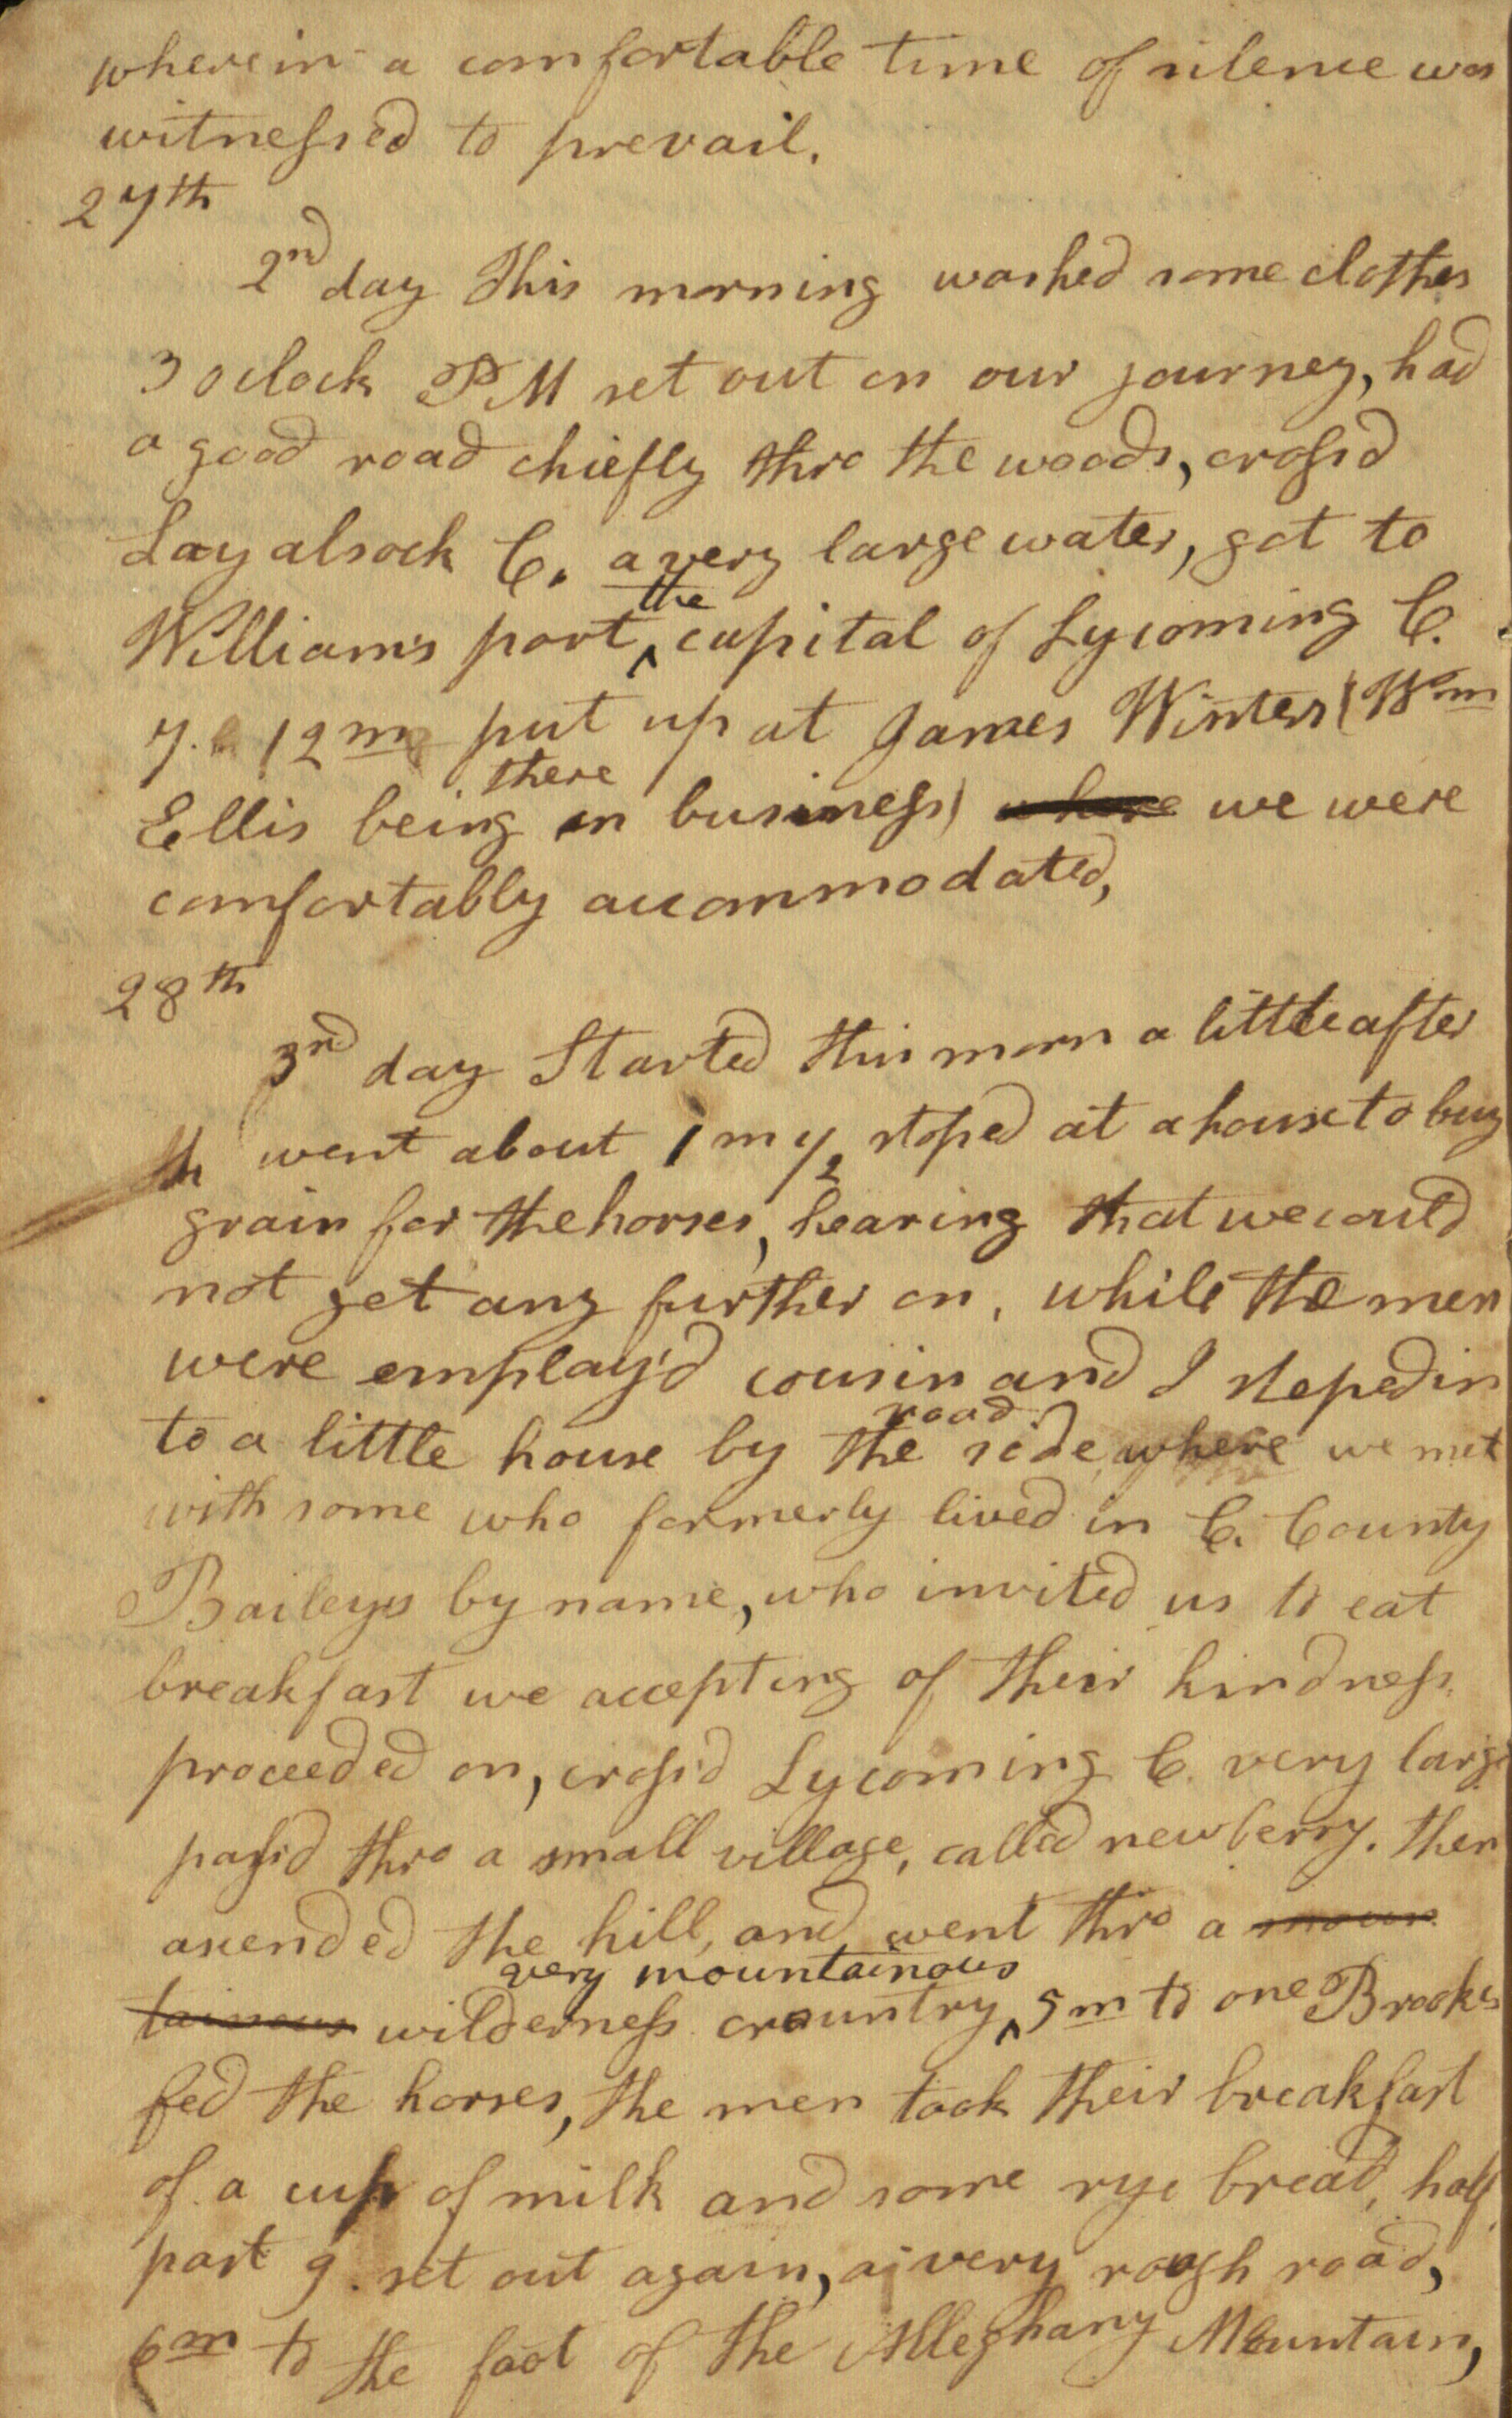 wherein a comfortable time of silence was
witnessed to prevail.
27th
2nd day This morning washed some clothes
3 oclock PM set out on our journey, had
a good road chiefly thro the woods, crossd
Layalsock C. a very large water, got to
William's port, the capital of Lycoming C.
7. 12m put up at James Winters (Wm
Ellis being there in business) where we were
comfortably accommodated,
28th
3rd day Started this morn a little after
went about 1 m stoped at a house to buy
grain for the horses, hearing that we could
not get any further on, while the men
were employ'd cousin and I steped in
to a little house by the road side, where we met
with some who formerly lived in C. County
Baileys by name, who invited us to eat
breakfast we accepting of their kindness
proceeded on, cross'd Lycoming C. very large
pass'd thro a small village, called newberry. then
asended the hill, and went thro a moun
tainous wilderness country very mountainous, 5m to one Brooks
fed the horses, the men took their breakfast
of a cup of milk and some rye bread, half
past 9. set out again, a very rough road,
6m to the foot of the Alleghany Mountain,